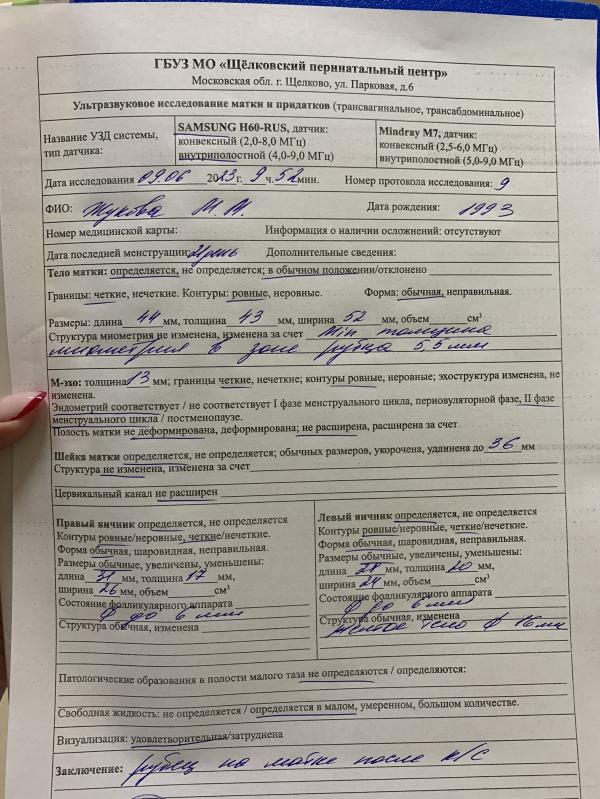 ГБУЗ МО «Щёлковский перинатальный центр»
Московская обл. г. Щелково, ул. Парковая, д.6
Ультразвуковое исследование матки и придатков (трансвагинальное, трансабдоминальное)
Название УЗД системы, тип датчика:
SAMSUNG H60-RUS, датчик:
конвексный (2,0-8,0 МГц)
внутриполостной (4,0-9,0 МГц)
Mindray M7, датчик:
конвексный (2,5-6,0 МГц)
внутриполостной (5,0-9,0 МГц)
Дата исследования 09.06 2023 г. 9 ч. 52 мин. Номер протокола исследования: 9
ФИО: Жукова М. Дата рождения: 1993
Номер медицинской карты: Информация о наличии осложнений: отсутствуют
Дата последней менструации: 21 день Дополнительные сведения:
Тело матки: определяется, не определяется; в обычном положении/отклонено
Границы: четкие, нечеткие. Контуры: ровные, неровные. Форма: обычная, неправильная.
Размеры: длина 44 мм, толщина 43 мм, ширина 52 мм, объем см³
Структура миометрия не изменена, изменена за счет Min толщина
миометрия в зоне рубца 5,5 мм
М-эхо: толщина 13 мм; границы четкие, нечеткие; контуры ровные, неровные; эхоструктура изменена, не
изменена.
Эндометрий соответствует / не соответствует I фазе менструального цикла, периовуляторной фазе, II фазе
менструального цикла / постменопаузе.
Полость матки не деформирована, деформирована; не расширена, расширена за счет
Шейка матки определяется, не определяется; обычных размеров, укорочена, удлинена до 36 мм
Структура не изменена, изменена за счет
Цервикальный канал не расширен
Правый яичник определяется, не определяется
Контуры ровные/неровные, четкие/нечеткие.
Форма обычная, шаровидная, неправильная.
Размеры обычные, увеличены, уменьшены:
длина 31 мм, толщина 17 мм,
ширина 26 мм, объем см³
Состояние фолликулярного аппарата
ф до 6 мм
Структура обычная, изменена
Левый яичник определяется, не определяется
Контуры ровные/неровные, четкие/нечеткие.
Форма обычная, шаровидная, неправильная.
Размеры обычные, увеличены, уменьшены:
длина 28 мм, толщина 20 мм,
ширина 24 мм, объем см³
Состояние фолликулярного аппарата
ф до 6 мм
Структура обычная, изменена
желтое тело ф 16 мм
Патологические образования в полости малого таза не определяются / определяются:
Свободная жидкость: не определяется / определяется в малом, умеренном, большом количестве.
Визуализация: удовлетворительная/затруднена
Заключение: рубец на матке после к/с